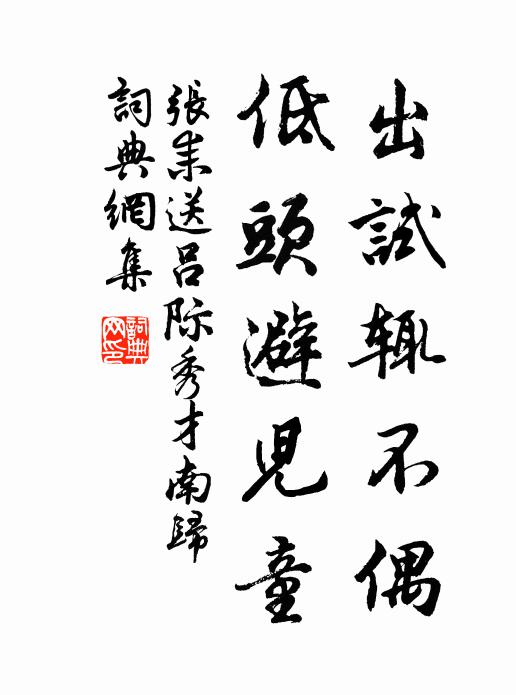 出試辄不偶
低頭避児童
張耒送呂际秀才南歸
詞典網集
詞典
网印